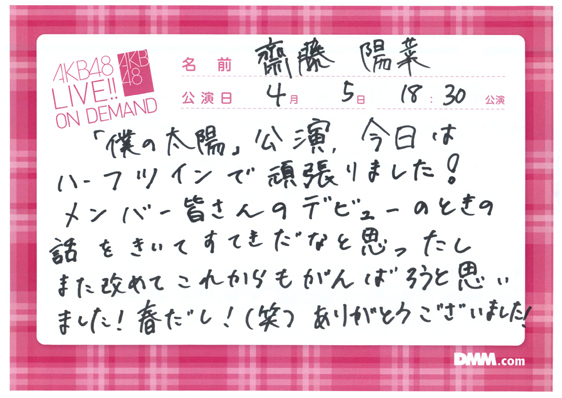 AKB48
LIVE!!
ON DEMAND
AKB
48
名前 齋藤 陽菜
公演日 4月 5日 18:30 公演
「僕の太陽」公演、今日は
ハーフツインで頑張りました!
メンバー皆さんのデビューのときの
話をきいてすてきだなと思ったし
また改めてこれからもがんばろうと思い
ました!春だし!(笑)ありがとうございました!
DMM.com